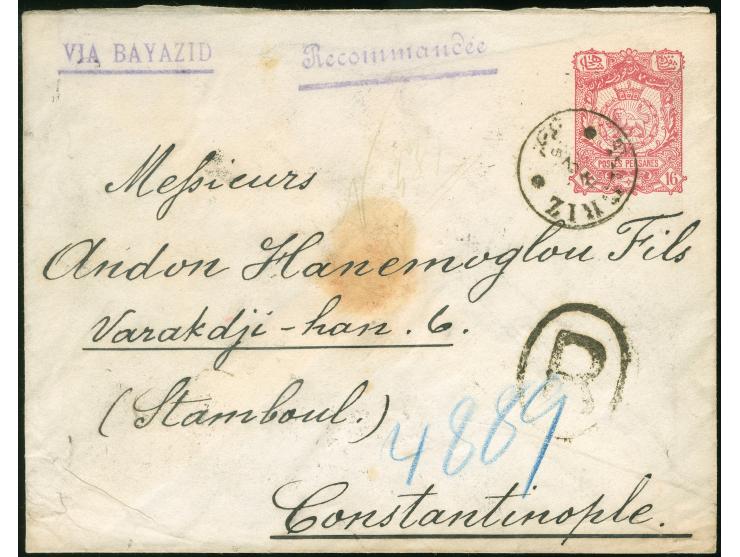 VIA BAYAZID
Recommandée
POSTES PERSANES
16
RIZ
Messieurs
Andon Hanemoglou Fils
Varakdji-han. 6.
(Stamboul.)
R
4889
Constantinople.